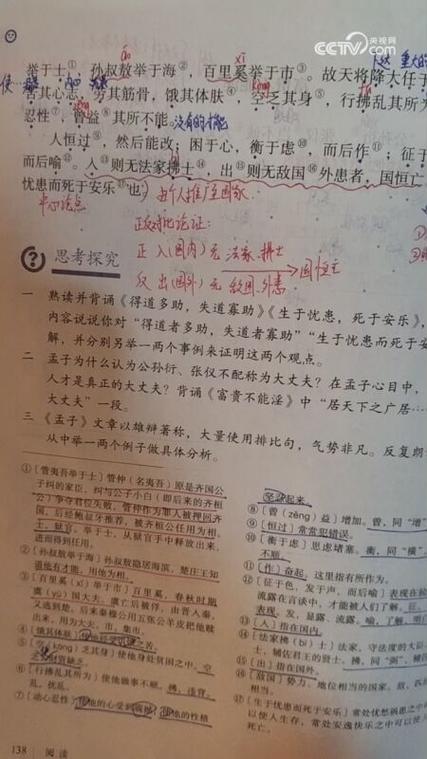 CCTV.com 央视网
举于士①,孙叔敖举于海②,百里奚举于市③。故天将降大任于
苦其心志,劳其筋骨,饿其体肤④,空乏其身⑤,行拂乱其所为
忍性⑦,曾益⑧其所不能。没有的才能
人恒过⑨,然后能改;困于心,衡于虑⑩,而后作⑪;征于
而后喻⑫。入⑬则无法家拂士⑭,出⑮则无敌国⑯外患者,国恒亡
忧患而死于安乐⑰也。由个人推广至国家
中心论点
正反对比论证:
正 入(国内)无 法家、拂士
反 出(国外)无 敌国、外患
国恒亡
思考探究
一 熟读并背诵《得道多助,失道寡助》《生于忧患,死于安乐》,
内容说说你对“得道者多助,失道者寡助”“生于忧患而死于安
解,并分别举一两个事例来证明这两个观点。
二 孟子为什么认为公孙衍、张仪不配称为大丈夫?在孟子心目中,
人才是真正的大丈夫?背诵《富贵不能淫》中“居天下之广居……
大丈夫”一段。
三 《孟子》文章以雄辩著称,大量使用排比句,气势非凡。反复朗
从中举一两个例子做具体分析。
①〔管夷吾举于士〕管仲(名夷吾)原是齐国公
子纠的家臣,纠与公子小白(即后来的齐桓
公)争夺君位失败,管仲作为罪人被押回齐
国,后经鲍叔牙推荐,被齐桓公任用为相。
士,狱官。举于士,从狱官手中释放出来,
进而得到任用。
②〔孙叔敖举于海〕孙叔敖隐居海滨,楚庄王知
道他有才能,用他为相。
③〔百里奚举于市〕百里奚,春秋时期
虞(yú)国大夫。虞亡后被俘,由晋入秦,
又逃到楚。后来秦穆公用五张公羊皮把他赎
出来,用为大夫。市,集市。
④〔饿其体肤〕使他经受饥饿之苦。
⑤〔空(kòng)乏其身〕使他身处贫困之中。空
⑥〔行拂乱其所为〕使他做事不顺。拂,违背。
乱,扰乱。
⑦〔动心忍性〕使他的心受到震撼,使他的性格
坚忍起来。
⑧〔曾(zēng)益〕增加。曾,同“增”
⑨〔恒过〕常常犯错误。
⑩〔衡于虑〕思虑堵塞。衡,同“横”
不顺。
⑪〔作〕奋起,这里指有所作为。
⑫〔征于色,发于声,而后喻〕表现在脸
流露在言谈中,才能被人们了解。征,
表现。发,显露、流露。喻,了解、明白
⑬〔入〕指在国内。
⑭〔法家拂(bì)士〕法家,守法度的大臣
士,辅佐君王的贤士。拂,同“弼”,辅
⑮〔出〕指在国外。
⑯〔敌国〕势力、地位相当的国家。敌,匹
相当。
⑰〔生于忧患而死于安乐〕常处忧愁祸患之中
以使人生存,常处安逸快乐之中可以使人
死亡。
138 阅读